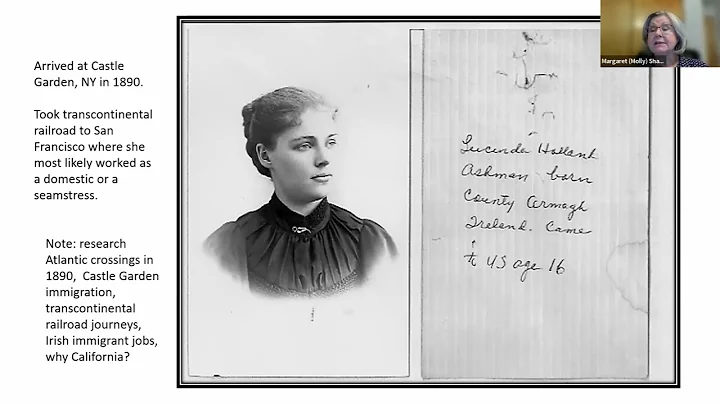 Arrived at Castle
Garden, NY in 1890.
Took transcontinental
railroad to San
Francisco where she
most likely worked as
a domestic or a
seamstress.
Note: research
Atlantic crossings in
1890, Castle Garden
immigration,
transcontinental
railroad journeys,
Irish immigrant jobs,
why California?
Lucinda Holland
Ashman born
County Armagh
Ireland. Came
to US age 16
Margaret (Molly) Sha...